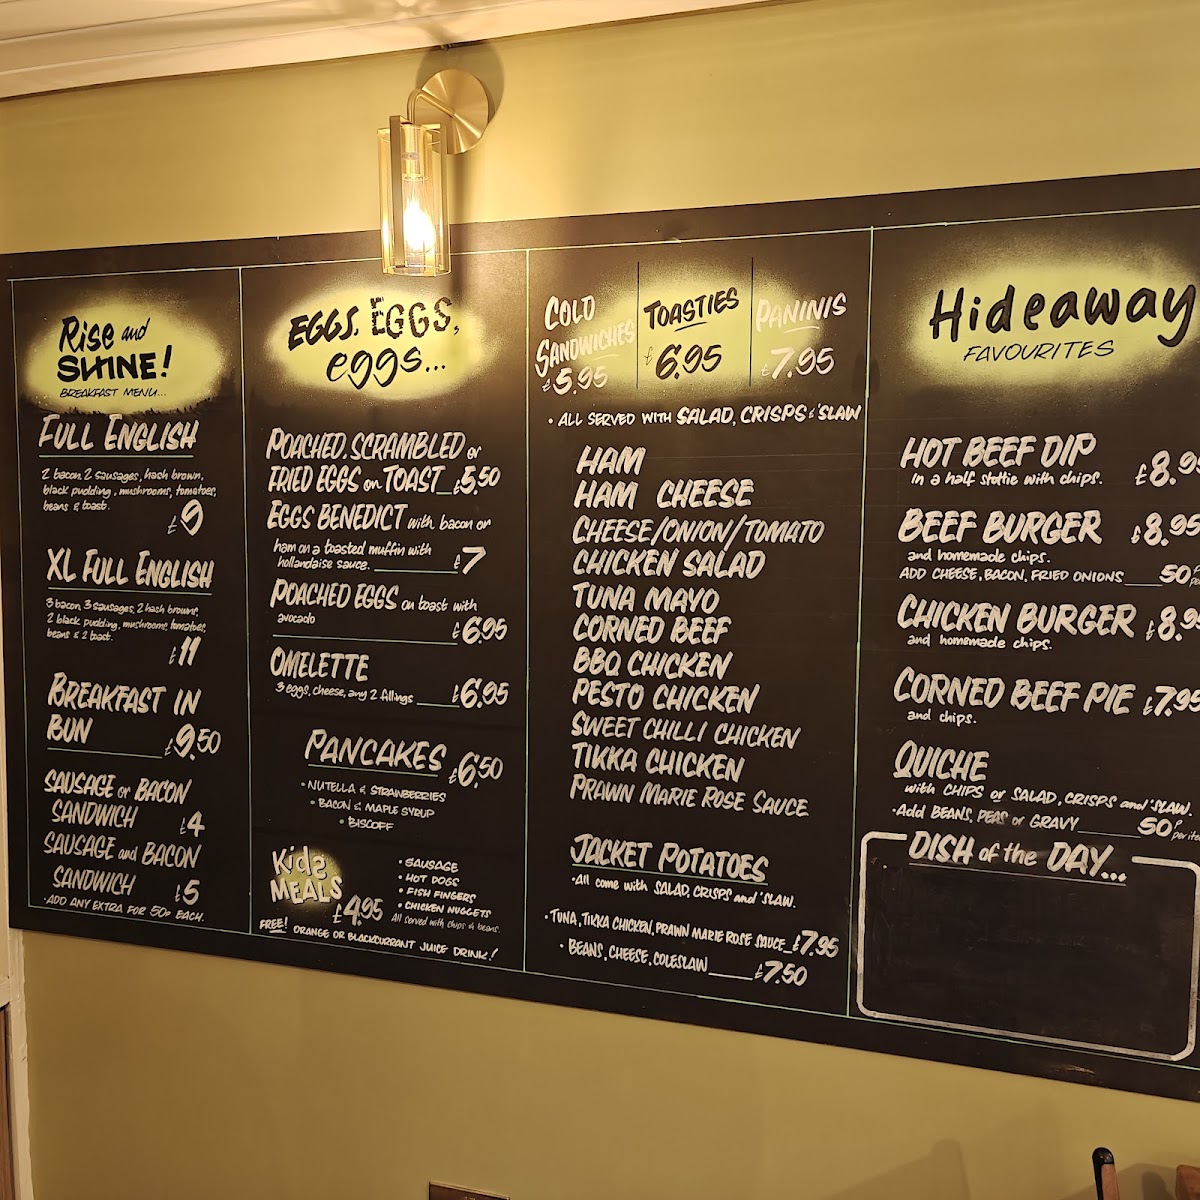 Rise and
SHINE!
BREAKFAST MENU...
FULL ENGLISH
2 bacon, 2 sausages, hash brown,
black pudding, mushrooms, tomatoes,
beans & toast.
£9
XL FULL ENGLISH
3 bacon, 3 sausages, 2 hash browns,
2 black pudding, mushrooms, tomatoes,
beans & 2 toast.
£11
BREAKFAST IN
BUN £9.50
SAUSAGE or BACON
SANDWICH £4
SAUSAGE and BACON
SANDWICH £5
·ADD ANY EXTRA FOR 50p EACH.
EGGS, EGGS,
eggs...
POACHED, SCRAMBLED or
FRIED EGGS on TOAST £5.50
EGGS BENEDICT with bacon or
ham on a toasted muffin with
hollandaise sauce. £7
POACHED EGGS on toast with
avocado £6.95
OMELETTE
3 eggs, cheese, any 2 fillings £6.95
PANCAKES £6.50
• NUTELLA & STRAWBERRIES
• BACON & MAPLE SYRUP
• BISCOFF
Kids
MEALS £4.95
• SAUSAGE
• HOT DOGS
• FISH FINGERS
• CHICKEN NUGGETS
All served with chips & beans.
FREE! ORANGE OR BLACKCURRANT JUICE DRINK!
COLD
SANDWICHES
£5.95
TOASTIES
£6.95
PANINIS
£7.95
• ALL SERVED WITH SALAD, CRISPS & 'SLAW
HAM
HAM CHEESE
CHEESE/ONION/TOMATO
CHICKEN SALAD
TUNA MAYO
CORNED BEEF
BBQ CHICKEN
PESTO CHICKEN
SWEET CHILLI CHICKEN
TIKKA CHICKEN
PRAWN MARIE ROSE SAUCE
JACKET POTATOES
•All come with SALAD, CRISPS and 'SLAW.
• TUNA, TIKKA CHICKEN, PRAWN MARIE ROSE SAUCE £7.95
• BEANS, CHEESE, COLESLAW £7.50
Hideaway
FAVOURITES
HOT BEEF DIP £8.95
in a half stottie with chips.
BEEF BURGER £8.95
and homemade chips.
ADD CHEESE, BACON, FRIED ONIONS 50p
CHICKEN BURGER £8.95
and homemade chips.
CORNED BEEF PIE £7.95
and chips.
QUICHE
with CHIPS or SALAD, CRISPS and 'SLAW
•Add BEANS, PEAS or GRAVY 50p per item
DISH of the DAY...